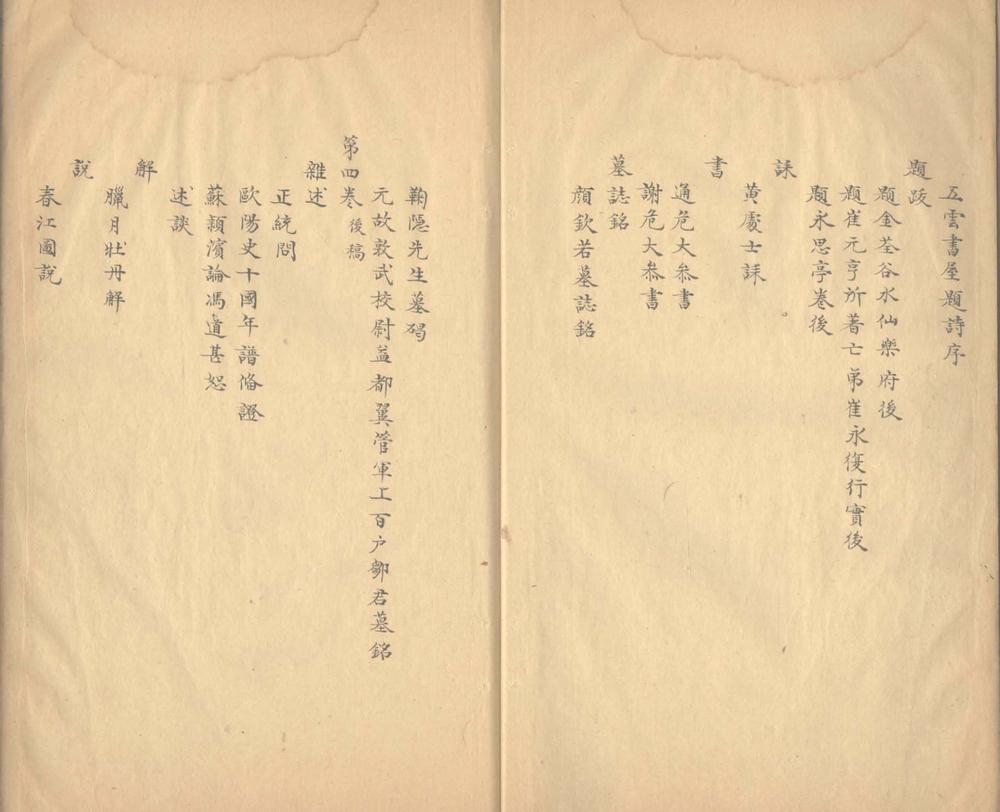 五雲書屋題詩序
題跋
題金荃谷水仙樂府後
題崔元亨所著亡弟崔永復行實後
題永思亭卷後
誄
黃處士誄
書
通危大叅書
謝危大叅書
墓誌銘
顔欽若墓誌銘
鞠隱先生墓碣
元故敦武校尉益都翼管軍上百户鄒君墓銘
第四卷後稿
雜述
正統問
歐陽史十國年譜俻證
蘇頴濱論馮道甚恕
述談
解
臘月牡丹解
說
春江圖説